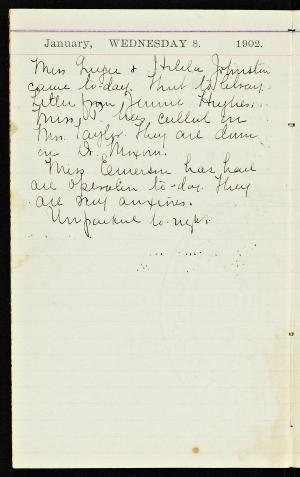 January, WEDNESDAY 8. 1902.
Miss & Johnston
came to-day. Went to library.
Letter from Jennie Hughes.
Miss called on
Mrs. Taylor. They are down
on Dr.
Miss Emerson has had
an operation to-day. They
are very anxious.
to-night.